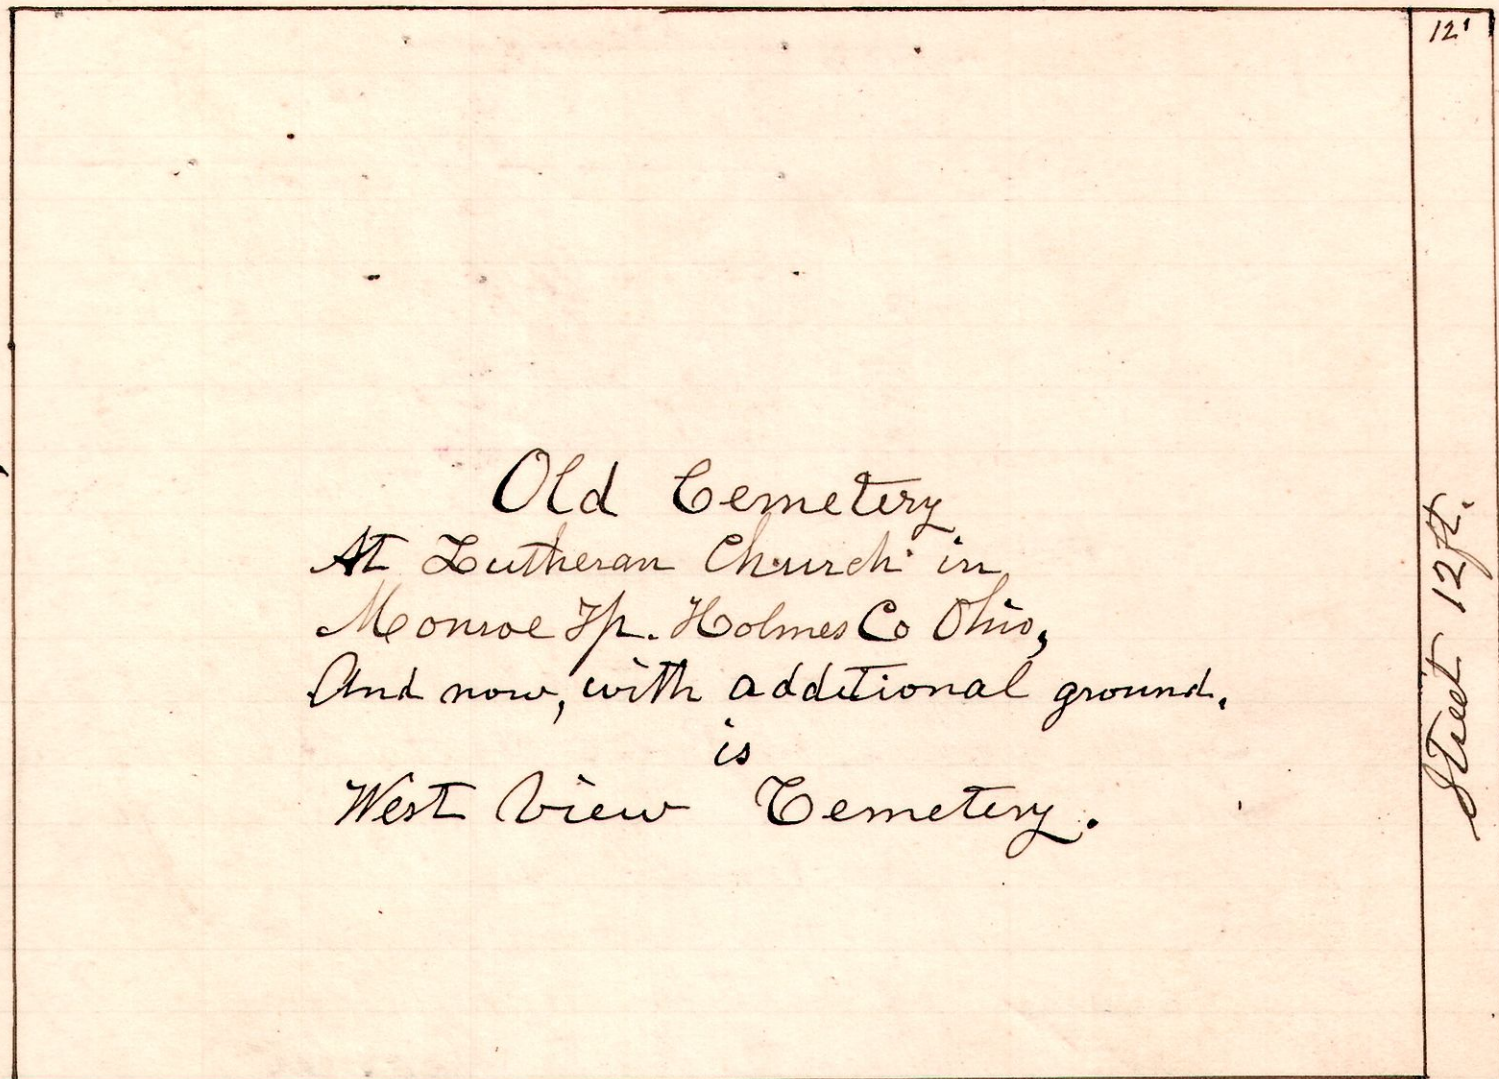 12'
Old Cemetery
At Lutheran Church in
Monroe Tp. Holmes Co Ohio,
And now, with additional ground,
is
West View Cemetery.
Street 12 ft.